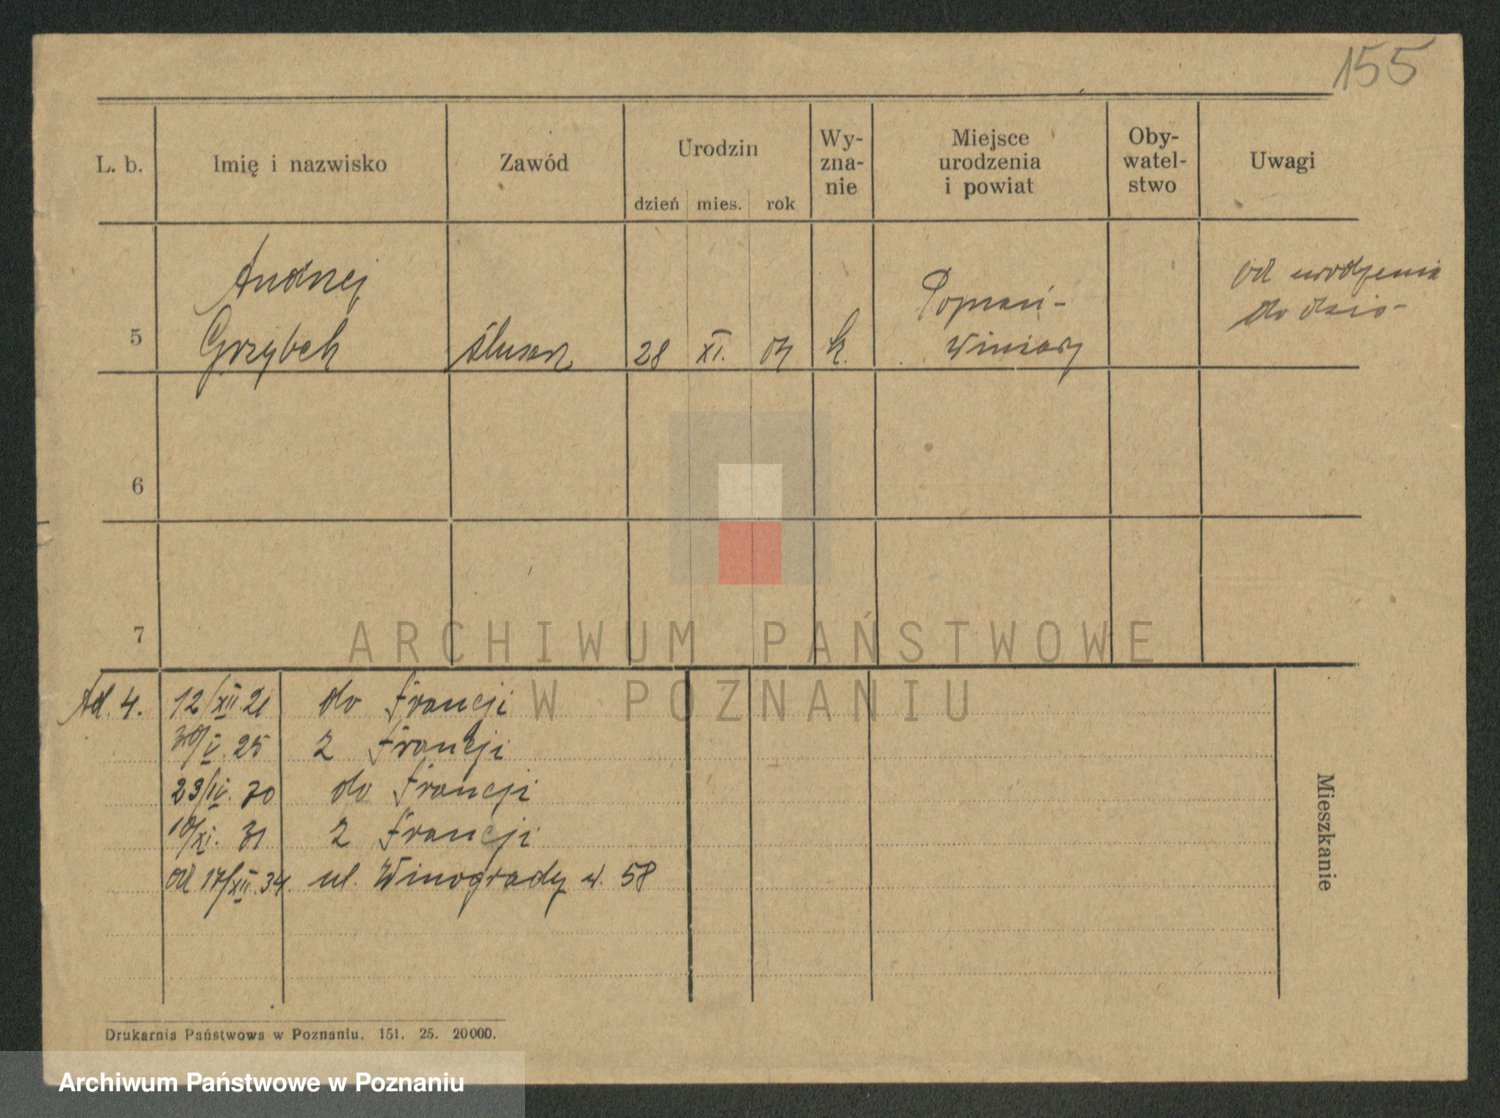 155
L. b.
Imię i nazwisko
Zawód
Urodzin
dzień mies. rok
Wy-
zna-
nie
Miejsce
urodzenia
i powiat
Oby-
watel-
stwo
Uwagi
5
Andrzej
Grzybek
ślusarz
28
XI.
04
k.
Poznań-
Winiary
od urodzenia
do dziś
6
7
ARCHIWUM PAŃSTWOWE
W POZNANIU
Ad. 4. 12/XII 21 do Francji
V. 25 z Francji
23/IV. 30 do Francji
10/XI. 31 z Francji
od 17/XII. 34 ul. Winogrady 58
Mieszkanie
Drukarnia Państwowa w Poznaniu. 151. 25. 20000.
Archiwum Państwowe w Poznaniu